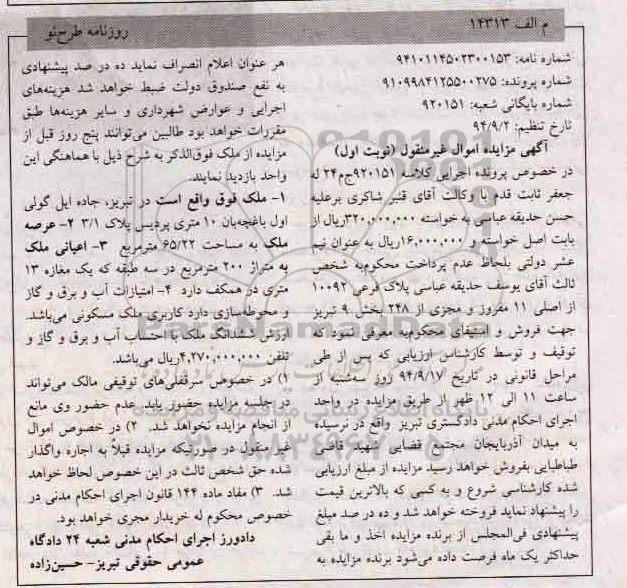 م الف ۱۴۳۱۳
روزنامه طرح‌نو
شماره نامه: ۹۴۱۰۱۱۴۵۰۲۳۰۰۱۵۳
شماره پرونده: ۹۱۰۹۹۸۴۱۲۵۵۰۰۲۷۵
شماره بایگانی شعبه: ۹۲۰۱۵۱
تارخ تنظیم: ۹۴/۹/۲
آگهی مزایده اموال غیرمنقول (نوبت اول)
در خصوص پرونده اجرایی کلاسه ۹۲۰۱۵۱ج‌م۲۴ له
جعفر ثابت قدم با وکالت آقای قنبر شاکری برعلیه
حسن حدیقه عباسی به خواسته ۳۲۰,۰۰۰,۰۰۰ریال از
بابت اصل خواسته و ۱۶,۰۰۰,۰۰۰ریال به عنوان نیم
عشر دولتی بلحاظ عدم پرداخت محکوم‌به شخص
ثالث آقای یوسف حدیقه عباسی پلاک فرعی ۱۰۰۹۲
از اصلی ۱۱ مفروز و مجزی از ۲۴۸ بخش ۹ تبریز
جهت فروش و استیفای محکوم‌به معرفی نمود که
توقیف و توسط کارشناس ارزیابی که پس از طی
مراحل قانونی در تاریخ ۹۴/۹/۱۷ روز سه‌شنبه از
ساعت ۱۱ الی ۱۲ ظهر از طریق مزایده در واحد
اجرای احکام مدنی دادگستری تبریز واقع در نرسیده
به میدان آذربایجان مجتمع قضایی شهید قاضی
طباطبایی بفروش خواهد رسید مزایده از مبلغ ارزیابی
شده کارشناسی شروع و به کسی که بالاترین قیمت
را پیشنهاد نماید فروخته خواهد شد و ده در صد مبلغ
پیشنهادی فی‌المجلس از برنده مزایده اخذ و ما بقی
حداکثر یک ماه فرصت داده می‌شود برنده مزایده به
هر عنوان اعلام انصراف نماید ده در صد پیشنهادی
به نفع صندوق دولت ضبط خواهد شد هزینه‌های
اجرایی و عوارض شهرداری و سایر هزینه‌ها طبق
مقررات خواهد بود طالبین می‌توانند پنج روز قبل از
مزایده از ملک فوق‌الذکر به شرح ذیل با هماهنگی این
واحد بازدید نمایند.
۱- ملک فوق واقع است در تبریز، جاده ایل گولی
اول باغچه‌بان ۱۰ متری پردیس پلاک ۳/۱ ۲- عرصه
ملک به مساحت ۶۵/۲۲ مترمربع ۳- اعیانی ملک
به متراژ ۲۰۰ مترمربع در سه طبقه که یک مغازه ۱۳
متری در همکف دارد ۴- امتیازات آب و برق و گاز
و محوطه‌سازی دارد کاربری ملک مسکونی می‌باشد.
ارزش ششدانگ ملک با احتساب آب و برق و گاز و
تلفن ۴,۲۷۰,۰۰۰,۰۰۰ریال می‌باشد.
۱) در خصوص سرقفلی‌های توقیفی مالک می‌تواند
در جلسه مزایده حضور یابد. عدم حضور وی مانع
از انجام مزایده نخواهد شد. ۲) در خصوص اموال
غیرمنقول در صورتیکه مزایده قبلاً به اجاره واگذار
شده حق شخص ثالث در این خصوص لحاظ خواهد
شد. ۳) مفاد ماده ۱۴۴ قانون اجرای احکام مدنی در
خصوص محکوم له خریدار مجری خواهد بود.
دادورز اجرای احکام مدنی شعبه ۲۴ دادگاه
عمومی حقوقی تبریز- حسین‌زاده
ParsNamadData